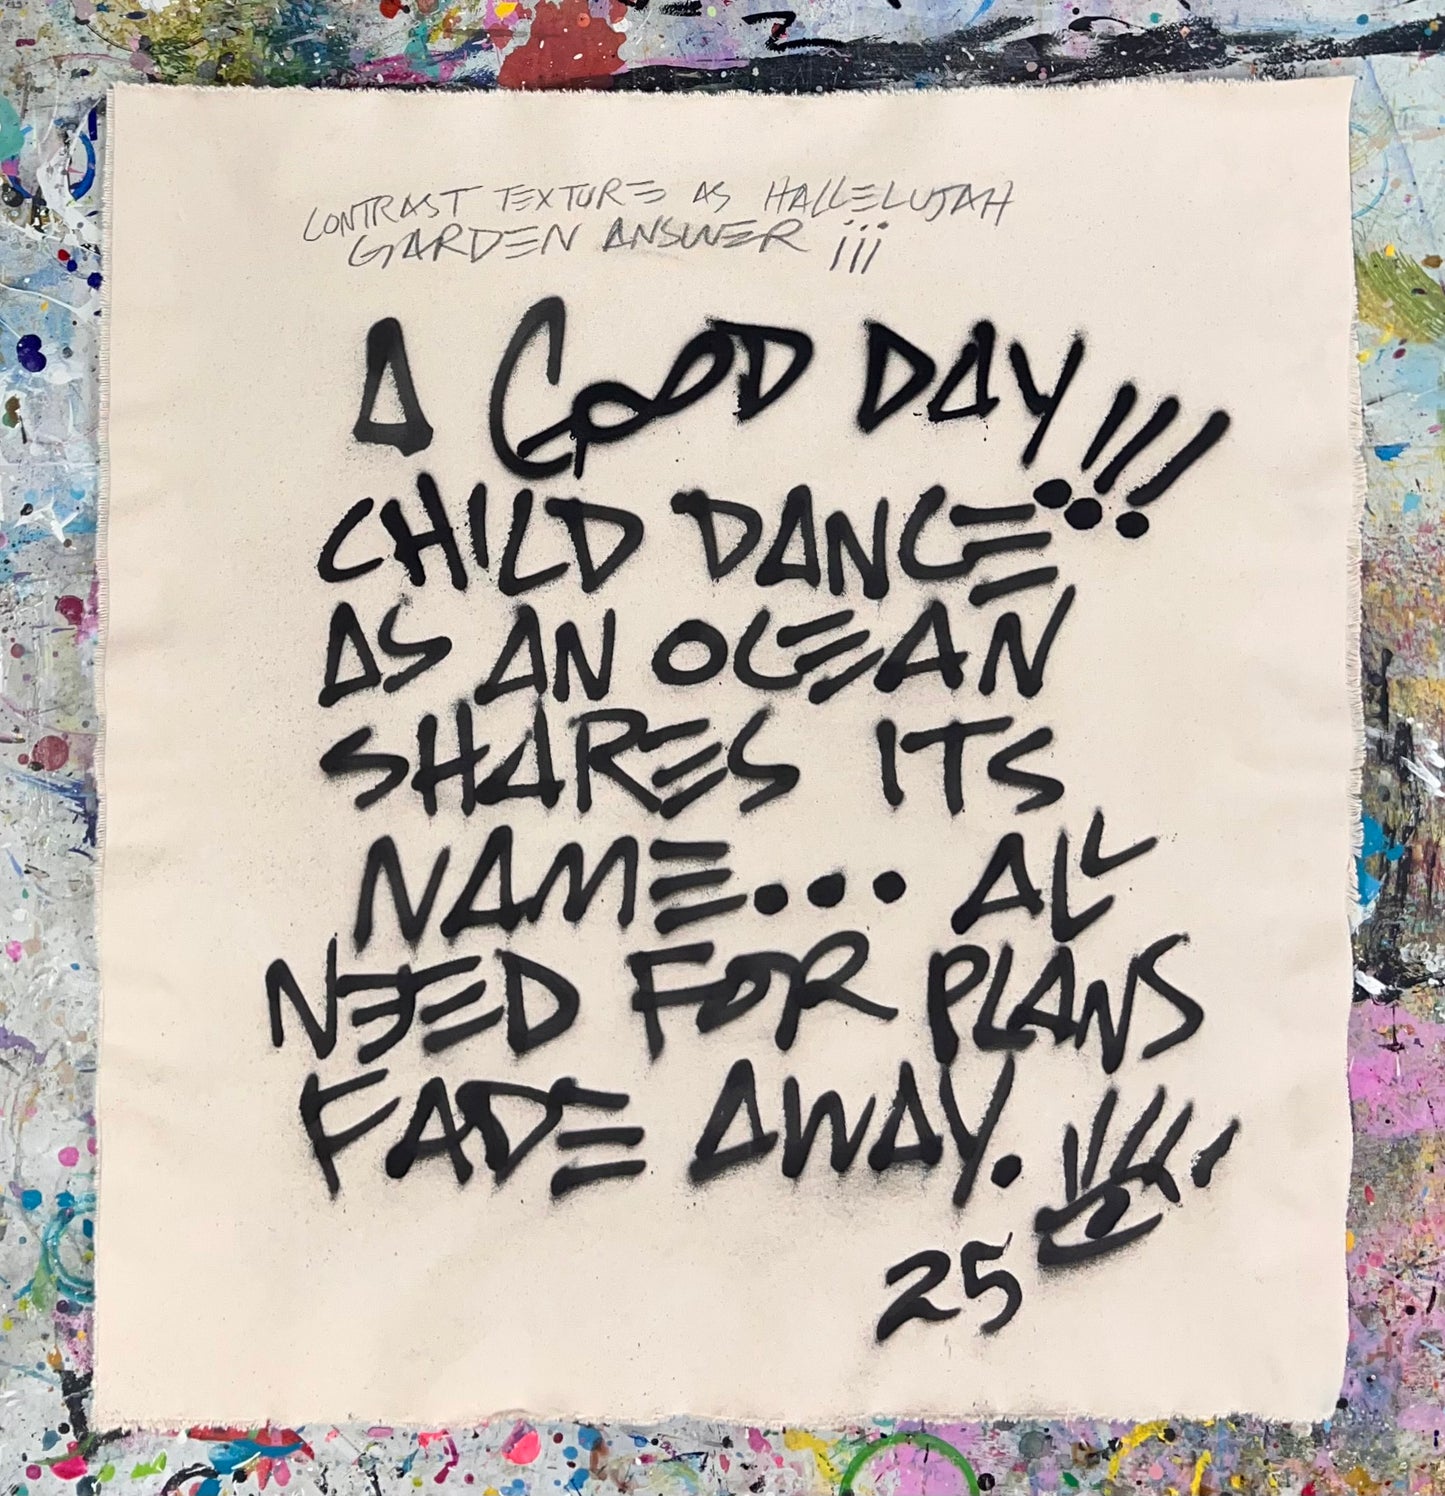 CONTRAST TEXTURE AS HALLELUJAH
GARDEN ANSWER ¡¡¡
A GOOD DAY!!!
CHILD DANCE
AS AN OCEAN
SHARES ITS
NAME... ALL
NEED FOR PLANS
FADE AWAY.
25